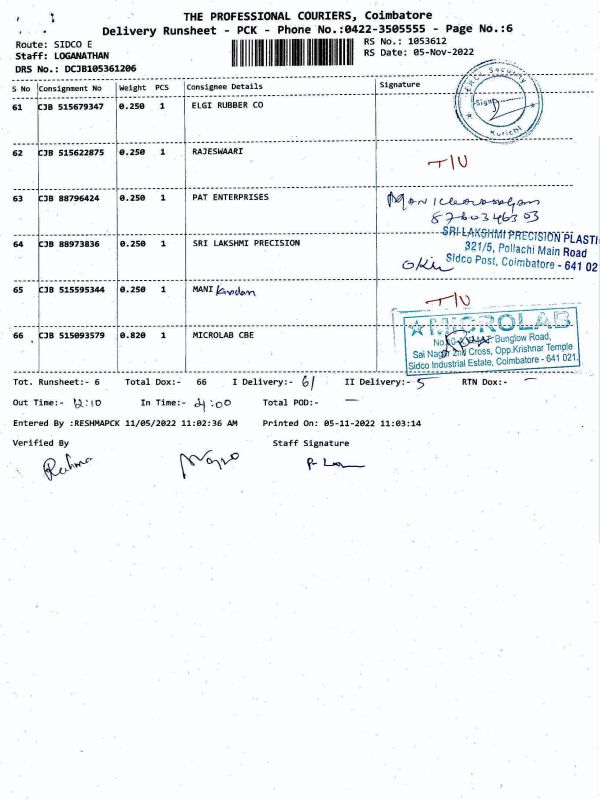 THE PROFESSIONAL COURIERS, Coimbatore
Delivery Runsheet - PCK - Phone No.:0422-3505555 - Page No.:6
Route: SIDCO E RS No.: 1053612
Staff: LOGANATHAN RS Date: 05-Nov-2022
DRS No.: DCJB105361206
S No Consignment No Weight PCS Consignee Details Signature
61 CJB 515679347 0.250 1 ELGI RUBBER CO
Security
Sign
Kurichi
62 CJB 515622875 0.250 1 RAJESWAARI T/U
63 CJB 88796424 0.250 1 PAT ENTERPRISES
8760346303
64 CJB 88973836 0.250 1 SRI LAKSHMI PRECISION
SRI LAKSHMI PRECISION PLASTI
321/5, Pollachi Main Road
Sidco Post, Coimbatore - 641 02
65 CJB 515595344 0.250 1 MANI T/U
66 CJB 515093579 0.820 1 MICROLAB CBE
MICROLAB
Bunglow Road,
Sai Nagar 2nd Cross, Opp.Krishnar Temple
Sidco Industrial Estate, Coimbatore - 641 021.
Tot. Runsheet:- 6 Total Dox:- 66 I Delivery:- 61 II Delivery:- 5 RTN Dox:- —
Out Time:- 12:10 In Time:- 4:00 Total POD:- —
Entered By :RESHMAPCK 11/05/2022 11:02:36 AM Printed On: 05-11-2022 11:03:14
Verified By Staff Signature
Reshma